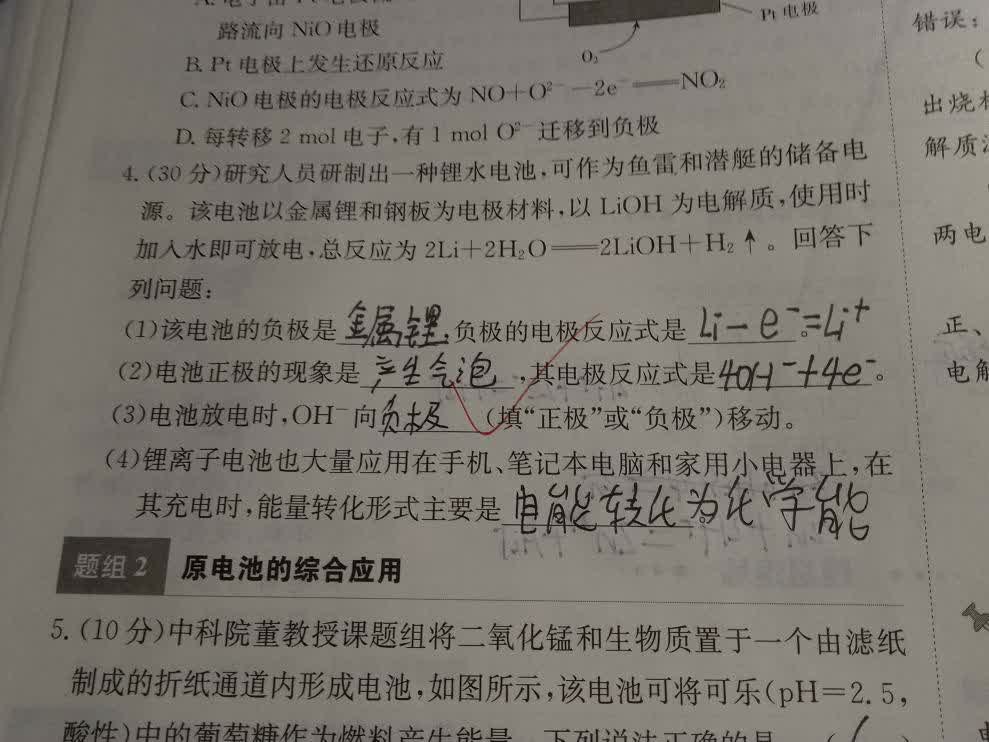 路流向 NiO 电极
Pt 电极
错误：
B. Pt 电极上发生还原反应
O₂
（
C. NiO 电极的电极反应式为 NO＋O²⁻－2e⁻══NO₂
出烧杯
D. 每转移 2 mol 电子，有 1 mol O²⁻ 迁移到负极
解质
4. (30 分)研究人员研制出一种锂水电池，可作为鱼雷和潜艇的储备电
源。该电池以金属锂和钢板为电极材料，以 LiOH 为电解质，使用时
加入水即可放电，总反应为 2Li＋2H₂O══2LiOH＋H₂↑。回答下
两电
列问题：
(1)该电池的负极是 金属锂 ，负极的电极反应式是 Li－e⁻＝Li⁺ 。
正、
(2)电池正极的现象是 产生气泡 ，其电极反应式是 4OH⁻＋4e⁻ 。
电解
(3)电池放电时，OH⁻ 向 负极 （填“正极”或“负极”）移动。
(4)锂离子电池也大量应用在手机、笔记本电脑和家用小电器上，在
其充电时，能量转化形式主要是 电能转化为化学能
题组 2 原电池的综合应用
5. (10 分)中科院董教授课题组将二氧化锰和生物质置于一个由滤纸
制成的折纸通道内形成电池，如图所示，该电池可将可乐(pH＝2.5，
酸性)中的葡萄糖作为燃料产生能量。下列说法正确的是 （